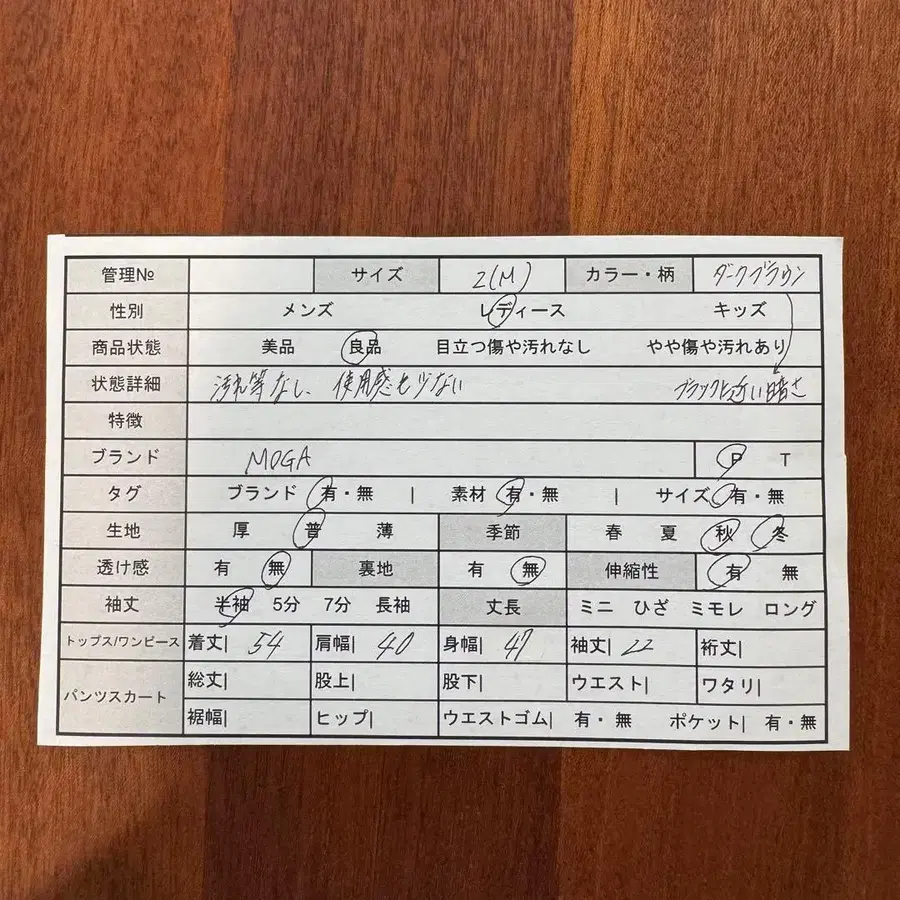 管理№ サイズ 2(M) カラー・柄 ダークブラウン
性別 メンズ レディース キッズ
商品状態 美品 良品 目立つ傷や汚れなし やや傷や汚れあり
状態詳細 汚れ等なし、使用感も少ない ブラックに近い暗さ
特徴
ブランド MOGA P T
タグ ブランド 有・無 | 素材 有・無 | サイズ 有・無
生地 厚 普 薄 季節 春 夏 秋 冬
透け感 有 無 裏地 有 無 伸縮性 有 無
袖丈 半袖 5分 7分 長袖 丈長 ミニ ひざ ミモレ ロング
トップス/ワンピース 着丈| 54 肩幅| 40 身幅| 47 袖丈| 22 裄丈|
パンツスカート 総丈| 股上| 股下| ウエスト| ワタリ|
裾幅| ヒップ| ウエストゴム| 有・無 ポケット| 有・無